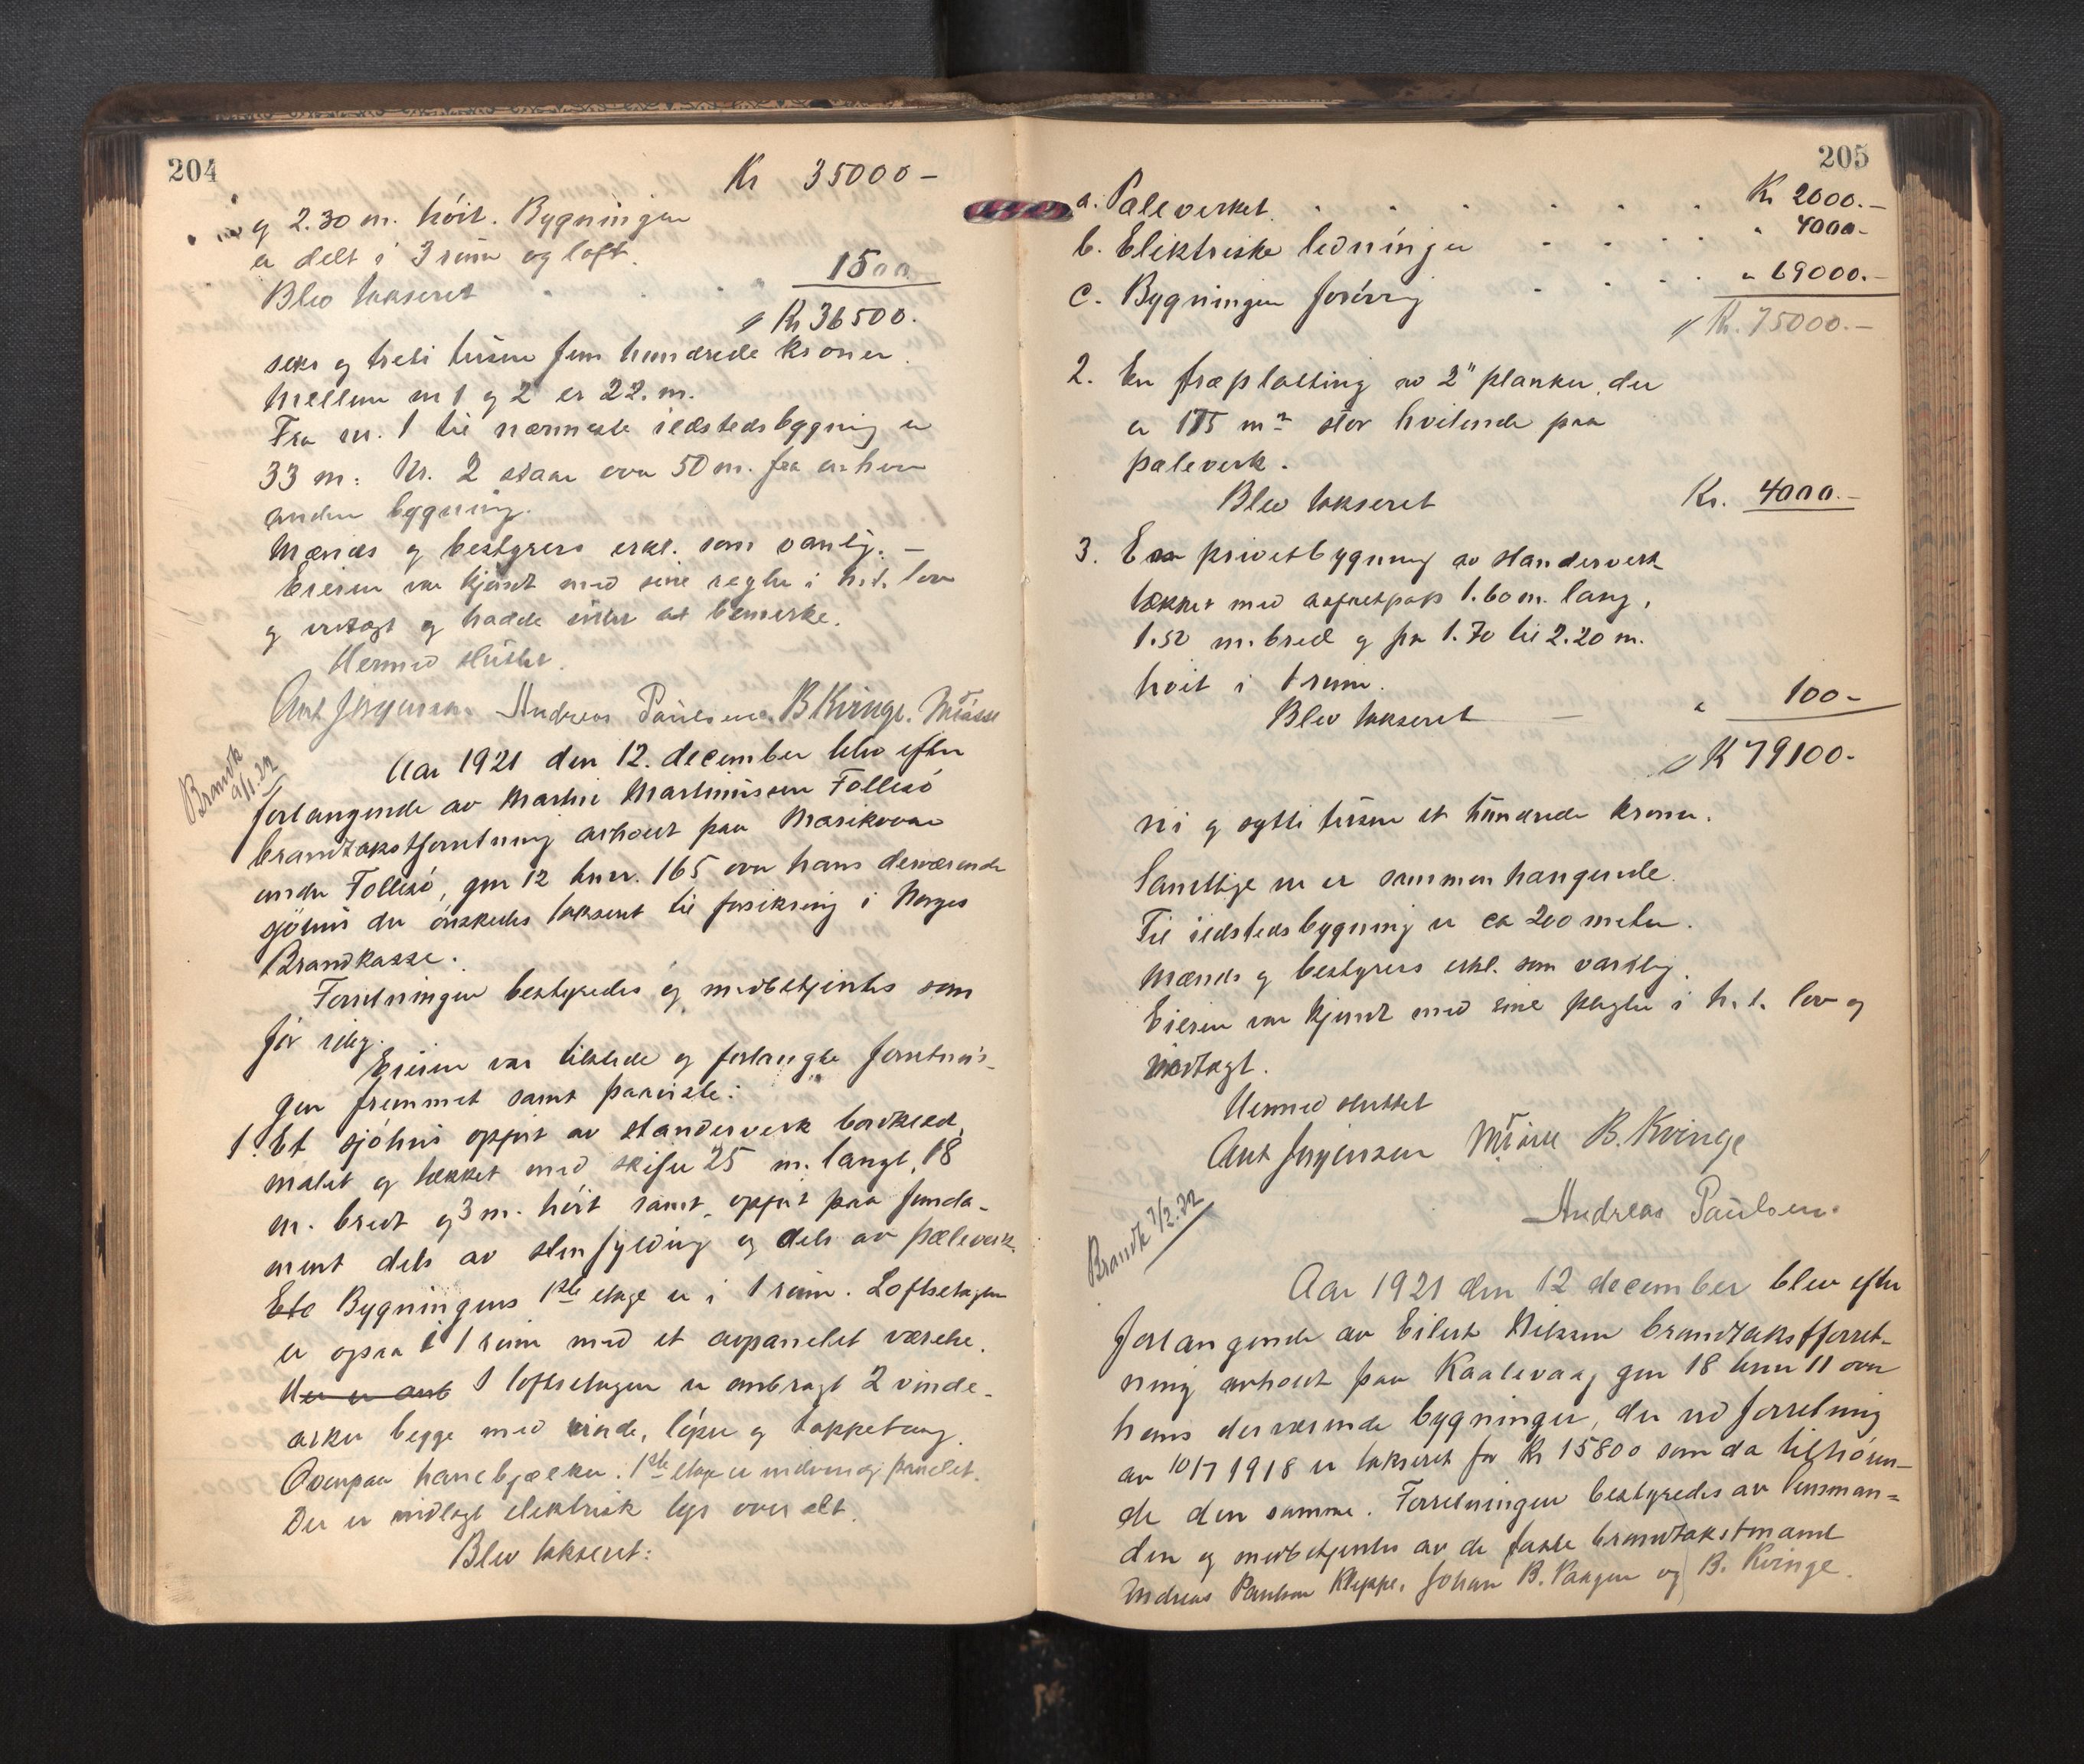 204
Kr 35000 -
og 2.30 m. höit. Bygningen
er delt i 3 rum og loft.
Blev takseret " 1500
Kr 36500.
seks og treti tusen fem hundrede kroner.
Mellem nr 1 og 2 er 22. m.
Fra nr. 1 til nærmeste ildstedsbygning er
33 m: Nr. 2 staar over 50 m. fra enhver
anden bygning.
Mænds og bestyrers erkl. som vanlig. -
Eieren var kjendt med sine regler i h.t. lov
og vedtagt og hadde intet at bemerke.
Hermed sluttet.
Ant Jørgensen. Andreas Paulsen. B Kvinge.
Brandk
9/1.22
Aar 1921 den 12. december blev efter
forlangende av Martin Martinussen Follesö
brandtakstforretning avholdt paa Marikoven
under Follesö, gnr 12 bnr. 165 over hans derværende
sjöhus der önskedes takseret til forsikring i Norges
Brandkasse.
Forretningen bestyredes og medbetjentes som
för idag.
Eieren var tilstede og forlangte forretnin-
gen fremmet samt paaviste:
1. Et sjöhus opført av standerverk bordklæd,
malet og tækket med skifer 25 m. langt, 18
m. bredt og 3 m. höit samt opført paa funda-
ment dels av stenfylding og dels av pæleverk.
Ete Bygningens 1ste etage er i 1 rum. Loftsetagen
er ogsaa i 1 rum med et avpanelet værelse.
Her er anb I loftsetagen er anbragt 2 vinde-
arker begge med vinde, löper og tappetaug.
Ovenpaa hanebjælker. 1ste etage er indvendig panelet.
Der er indlagt elektrisk lys over alt.
Blev takseret:
205
a. Pæleverket . . . . . . . Kr 2000.-
b. Elektriske ledninger . . . . " 4000-
c. Bygningen forövrig . . . . " 69000.-
Kr. 75000.-
2. En træplatting av 2" planker, der
er 175 m2 stor hvilende paa
pæleverk.
Blev takseret Kr. 4000.-
3. En privetbygning av standerverk
tækket med asfaltpap 1.60 m. lang,
1.50 m. bred og fra 1.70 til 2.20 m.
höit i 1 rum.
Blev takseret - " 100-
K 79100-
ni og sytti tusen et hundrede kroner.
Samtlige nr er sammenhængende.
Til ildstedsbygning er ca 200 meter.
Mænds og bestyrers erkl. som vanlig.
Eieren var kjendt med sine plegter i h.t. lov og
vedtagt.
Hermed sluttet
Ant Jørgensen B. Kvinge
Andreas Paulsen.
Brandk 7/2.22
Aar 1921 den 12 december blev efter
forlangende av Eilert Nilssen brandtakstforret-
ning avholdt paa Kaalevaag gnr 18 bnr 11 over
hans derværende bygninger, der ved forretning
av 10/7 1918 er takseret for Kr 15800 som da tilhören-
de den samme. Forretningen bestyredes av lensman-
den og medbetjentes av de faste brandtakstmænd
Andreas Paulsen Kleppe, Johan B. og B. Kvinge.